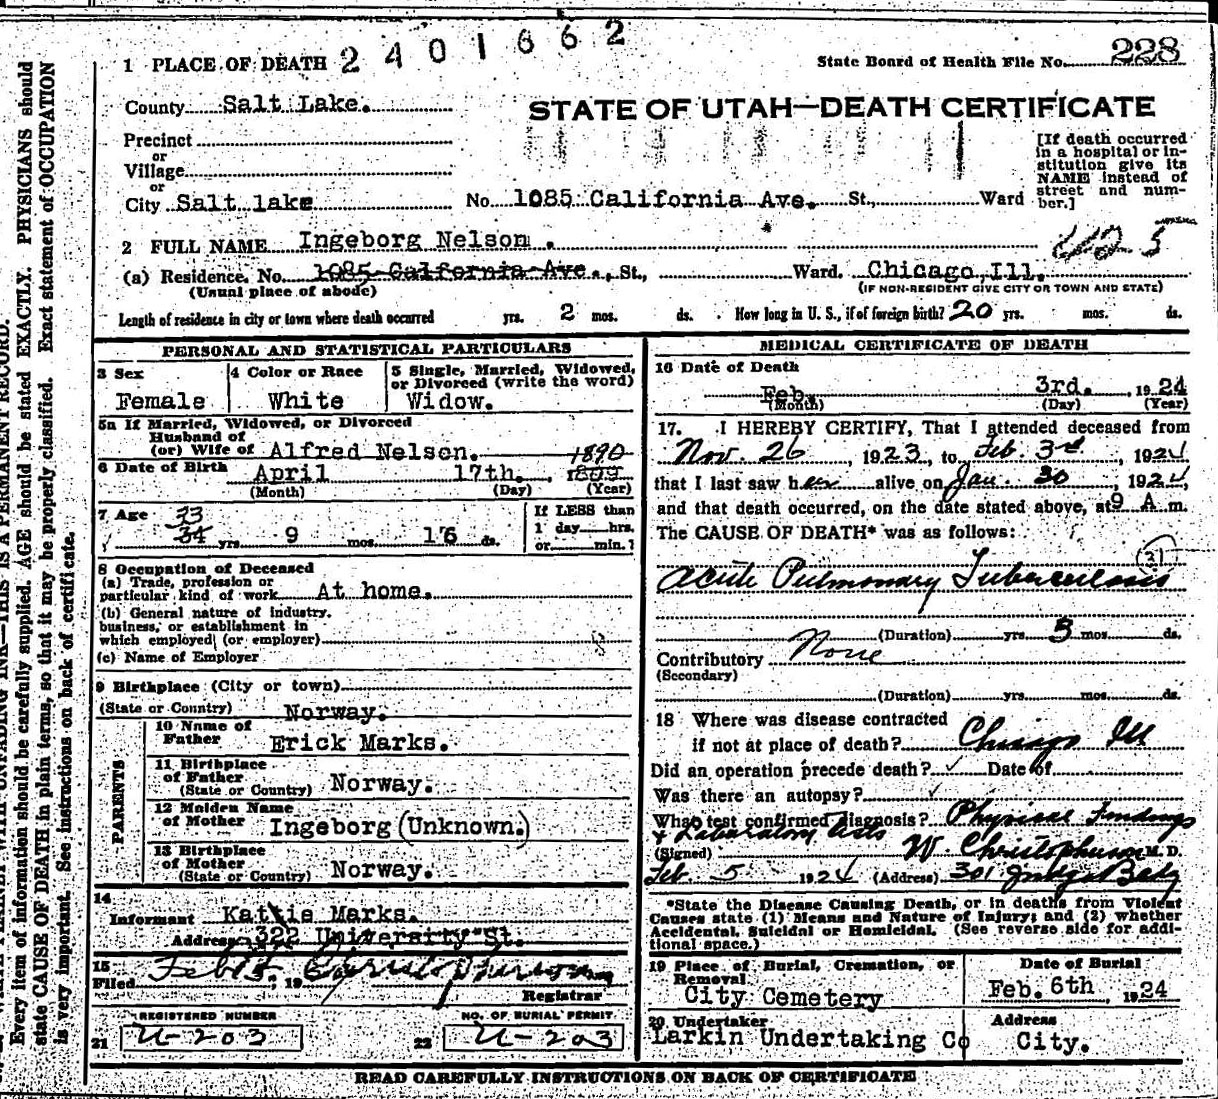 2401662
1 PLACE OF DEATH
State Board of Health File No. 228
County Salt Lake.
STATE OF UTAH—DEATH CERTIFICATE
Precinct
or
Village
or
City Salt lake No. 1085 California Ave. St., Ward
[If death occurred
in a hospital or in-
stitution give its
NAME instead of
street and num-
ber.]
2 FULL NAME Ingeborg Nelson.
(a) Residence. No. 1085 California Ave., St., Ward. Chicago, Ill.
(Usual place of abode) (IF NON-RESIDENT GIVE CITY OR TOWN AND STATE)
Length of residence in city or town where death occurred yrs. 2 mos. ds. How long in U. S., if of foreign birth? 20 yrs. mos. ds.
PERSONAL AND STATISTICAL PARTICULARS
3 Sex
Female
4 Color or Race
White
5 Single, Married, Widowed,
or Divorced (write the word)
Widow.
5a If Married, Widowed, or Divorced
Husband of
(or) Wife of Alfred Nelson.
1890
6 Date of Birth April 17th., 1889
(Month) (Day) (Year)
7 Age 33
34 yrs. 9 mos. 16 ds.
If LESS than
1 day hrs.
or min.?
8 Occupation of Deceased
(a) Trade, profession or
particular kind of work At home.
(b) General nature of industry,
business, or establishment in
which employed (or employer)
(c) Name of Employer
9 Birthplace (City or town)
(State or Country) Norway.
PARENTS
10 Name of
Father Erick Marks.
11 Birthplace
of Father
(State or Country) Norway.
12 Maiden Name
of Mother Ingeborg (Unknown.)
13 Birthplace
of Mother
(State or Country) Norway.
14
Informant Kattie Marks.
Address 322 University St.
15
Filed Feb 5, 19
Registrar
REGISTERED NUMBER
21 U-203
NO. OF BURIAL PERMIT
22 U-203
MEDICAL CERTIFICATE OF DEATH
16 Date of Death
Feb. 3rd. 1924
(Month) (Day) (Year)
17. I HEREBY CERTIFY, That I attended deceased from
Nov. 26, 1923, to Feb. 3rd, 1924
that I last saw her alive on Jan. 30, 1924,
and that death occurred, on the date stated above, at 9 A m.
The CAUSE OF DEATH* was as follows:
31
Acute Pulmonary Tuberculosis
(Duration) yrs. 3 mos. ds.
Contributory None
(Secondary)
(Duration) yrs. mos. ds.
18 Where was disease contracted
if not at place of death? Chicago Ill
Did an operation precede death? ✓ Date of
Was there an autopsy? ✓
What test confirmed diagnosis? Physical Findings
+ Laboratory tests
(Signed) W. Christopherson M. D.
Feb. 5 1924 (Address) 301 Judge Bldg
*State the Disease Causing Death, or in deaths from Violent
Causes state (1) Means and Nature of Injury; and (2) whether
Accidental, Suicidal or Homicidal. (See reverse side for addi-
tional space.)
19 Place of Burial, Cremation, or
Removal
City Cemetery
Date of Burial
Feb. 6th, 1924
20 Undertaker
Larkin Undertaking Co
Address
City.
READ CAREFULLY INSTRUCTIONS ON BACK OF CERTIFICATE
Every item of information should be carefully supplied. AGE should be stated EXACTLY. PHYSICIANS should
state CAUSE OF DEATH in plain terms, so that it may be properly classified. Exact statement of OCCUPATION
is very important. See instructions on back of certificate.